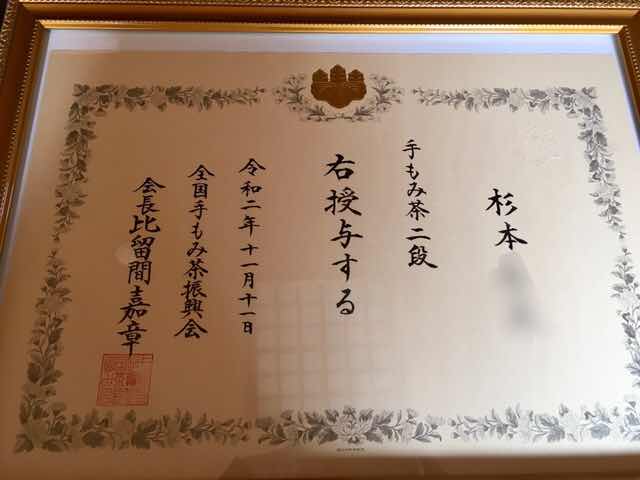 杉本
手もみ茶二段
右授与する
令和二年十一月十一日
全国手もみ茶振興会
会長比留間嘉章